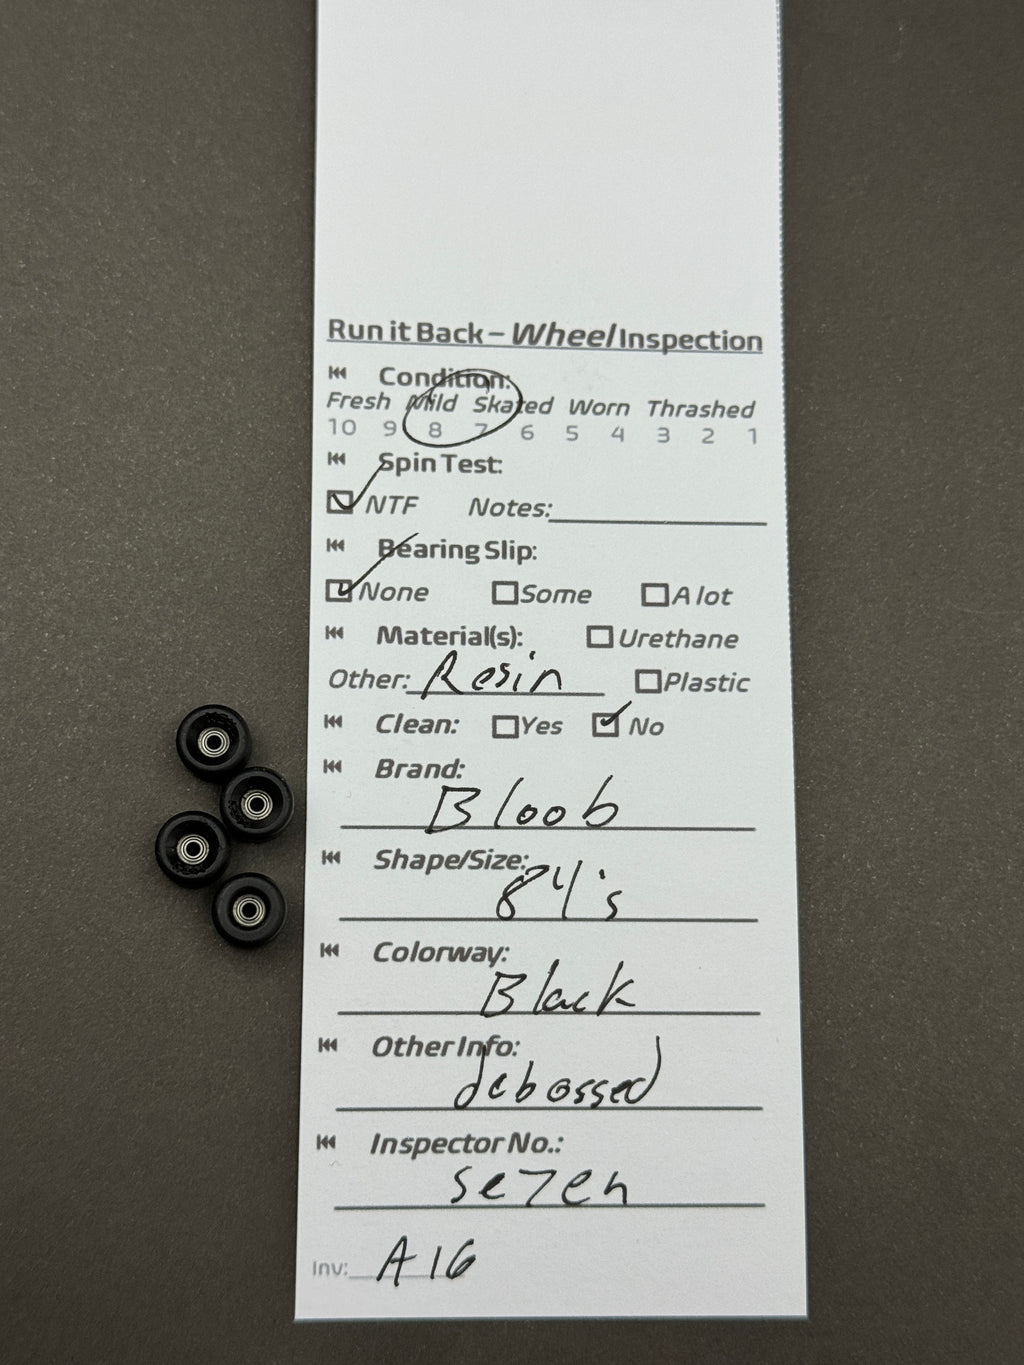 Run it Back – Wheel Inspection
Condition:
Fresh Mild Skated Worn Thrashed
10 9 8 7 6 5 4 3 2 1
Spin Test:
NTF Notes:
Bearing Slip:
None Some A lot
Material(s): Urethane
Other: Resin Plastic
Clean: Yes No
Brand:
Bloob
Shape/Size:
84's
Colorway:
Black
Other Info:
debossed
Inspector No.:
se7en
Inv: A16